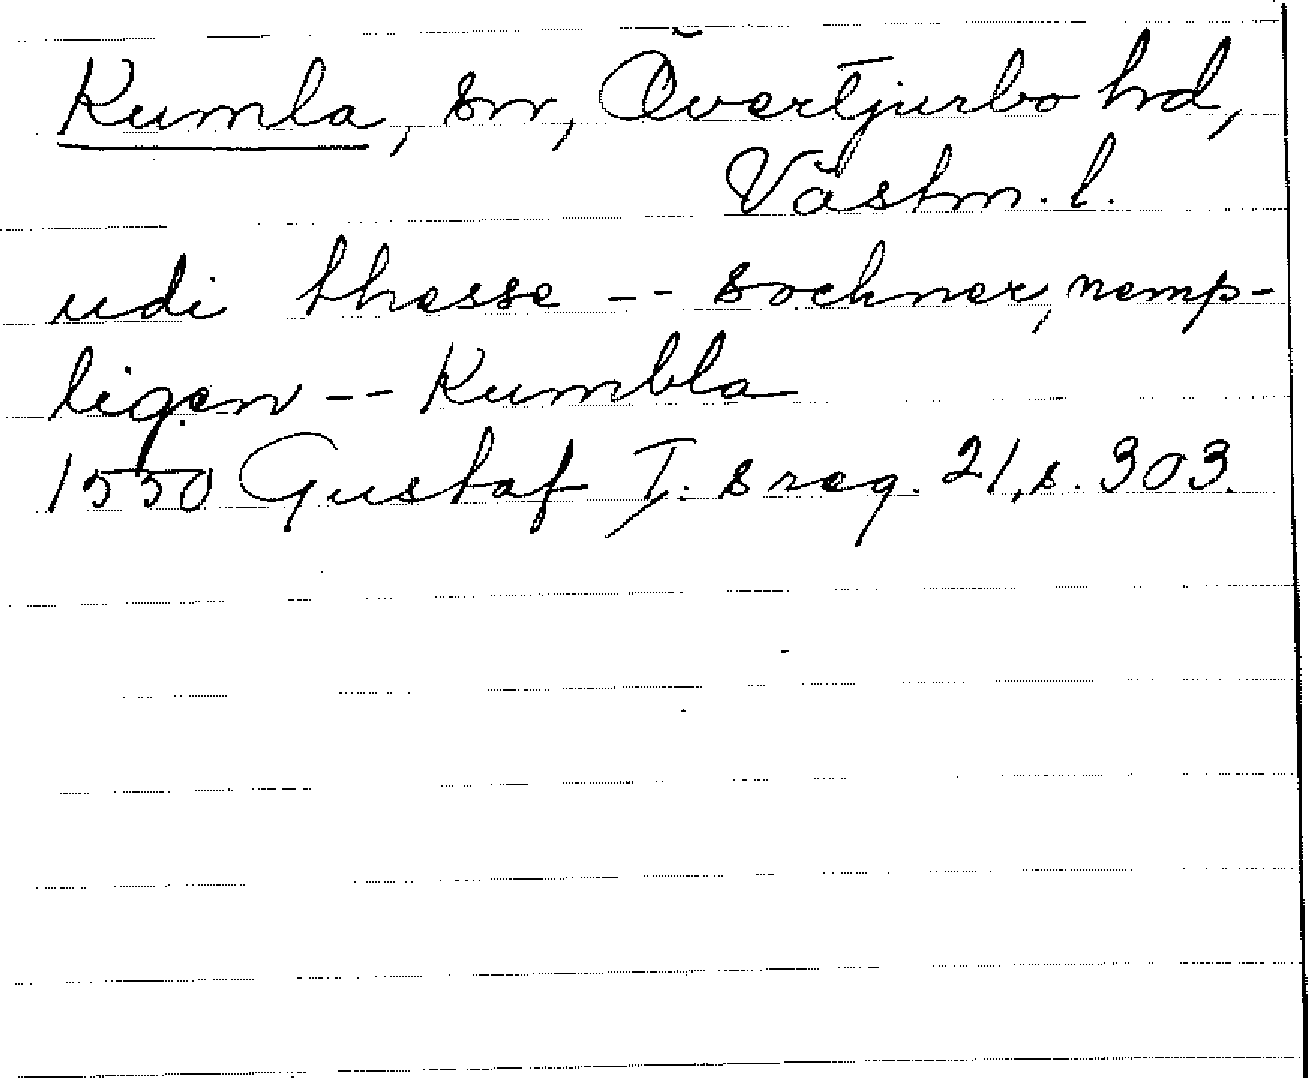 Kumla, sn, Övertjurbo hd,
Västm. l.
udi thesse -- sochner, nemp-
ligen -- Kumbla
1550 Gustaf I:s reg. 21, s. 303.